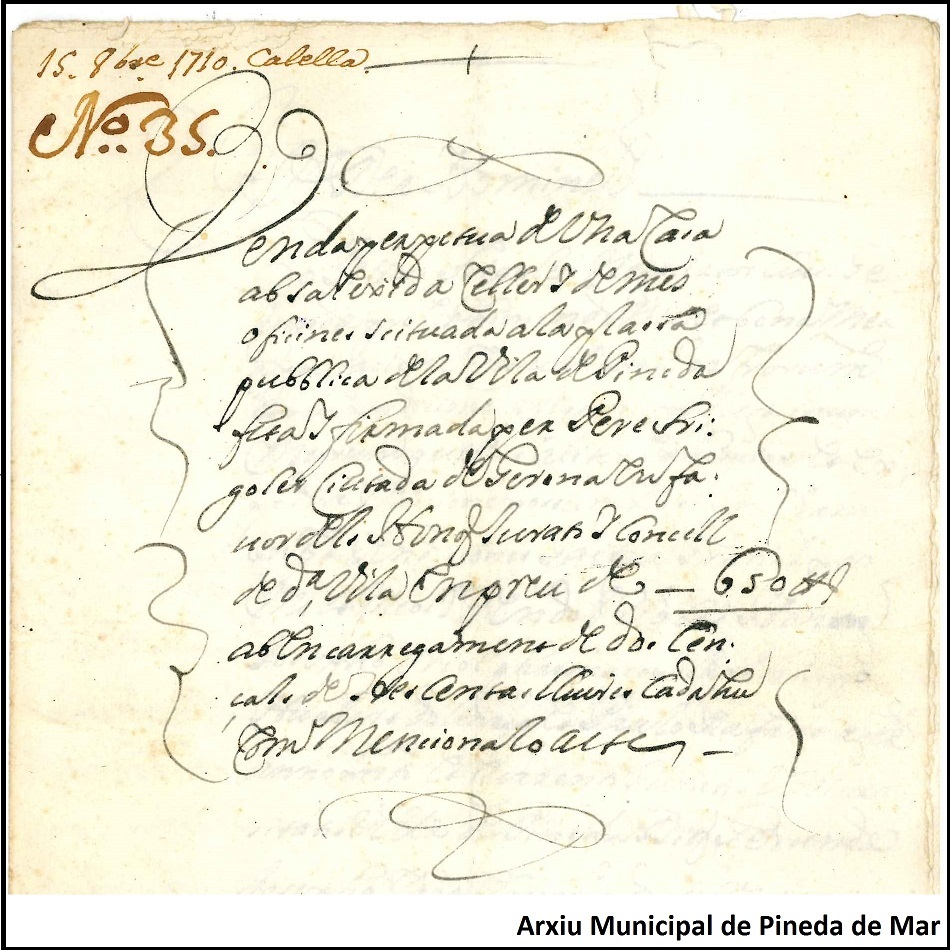 15. 8bre. 1710. Calella.
No. 35.
Venda perpetua de Una Casa
ab sa exida Celler y demes
oficines scituada a la plassa
pubblica de la Vila de Pineda
feta y firmada per Pere Fri:
goler Ciutada de Gerona
vor dels Honor Jurats y Concell
de da. Vila En preu de — 650 ₶
ab Encarregament de dos Cen:
sals de trescentas lliures Cada hu
Com Menciona lo acte —
Arxiu Municipal de Pineda de Mar